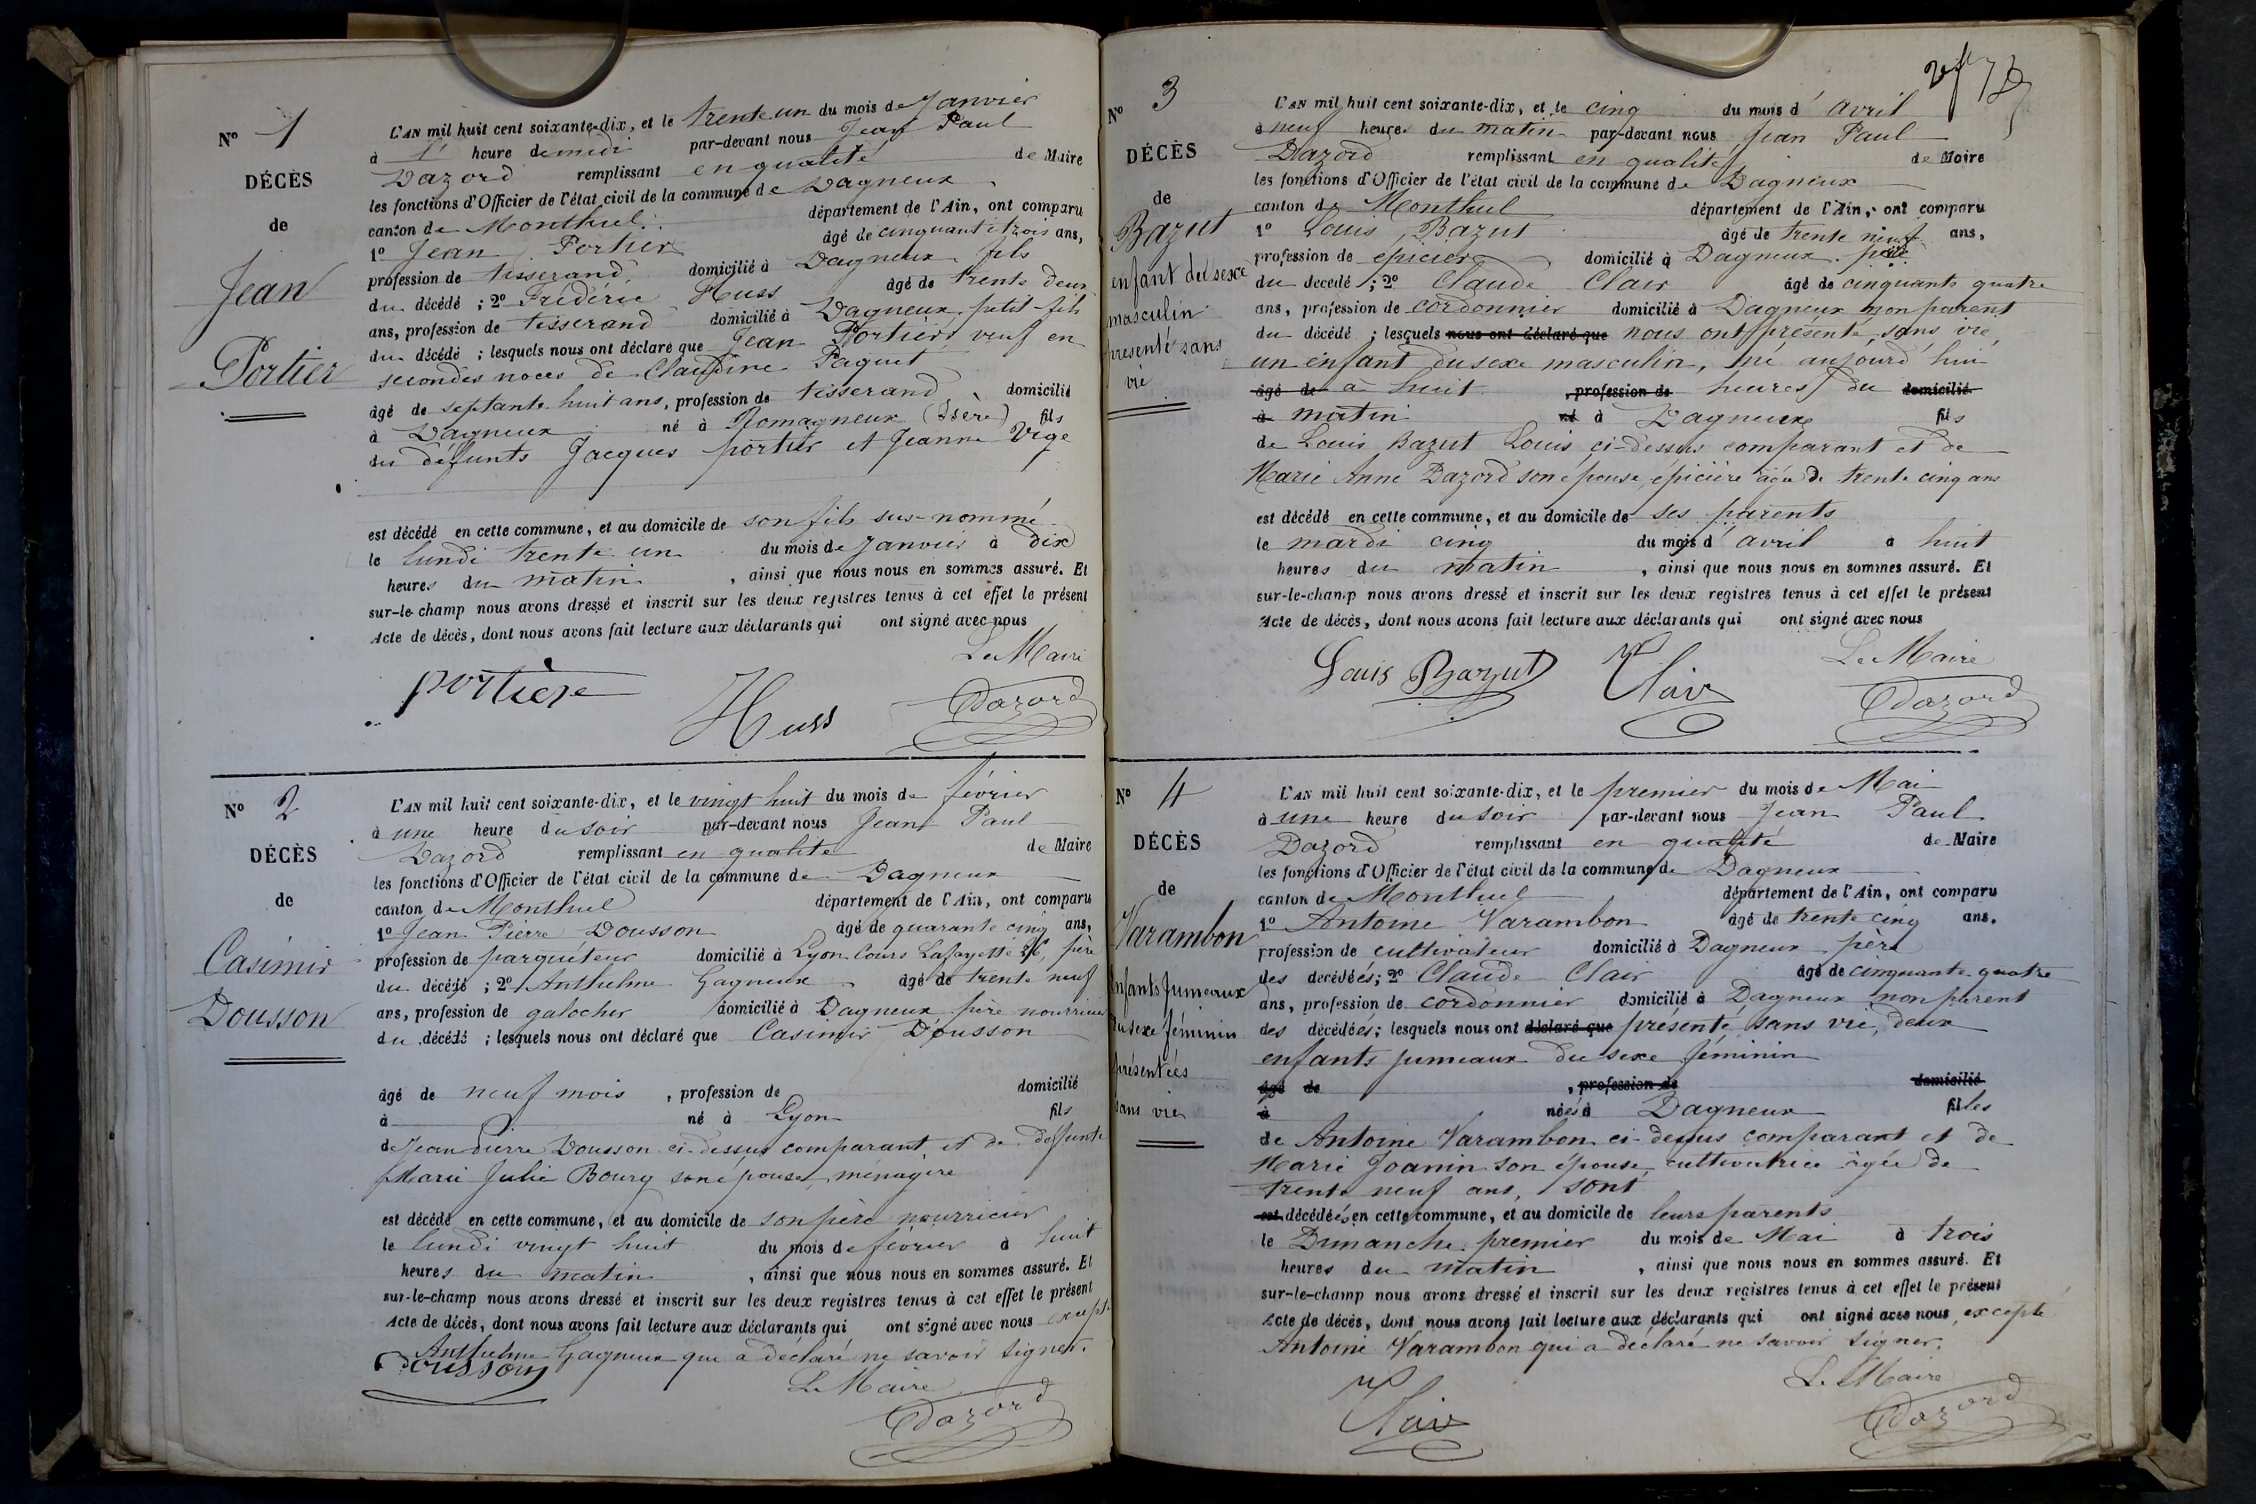 N° 1
DÉCÈS
de
Jean
Portier
L'AN mil huit cent soixante-dix, et le trente un du mois de Janvier
à 1 heure de midi par-devant nous Jean Paul
Dazord remplissant en qualité de Maire
les fonctions d'Officier de l'état civil de la commune de Dagneux
canton de Montluel département de l'Ain, ont comparu
1° Jean Portier âgé de cinquant trois ans,
profession de tisserand domicilié à Dagneux fils
du décédé ; 2° Frédéric Huss âgé de trente deux
ans, profession de tisserand domicilié à Dagneux petit-fils
du décédé ; lesquels nous ont déclaré que Jean Portier veuf en
secondes noces de Claudine Paquet
âgé de septante huit ans, profession de tisserand domicilié
à Dagneux né à Romagneux (Isère) fils
des défunts Jacques portier et Jeanne Vige
est décédé en cette commune, et au domicile de son fils sus-nommé
le lundi trente un du mois de Janvier à dix
heures du matin, ainsi que nous nous en sommes assuré. Et
sur-le-champ nous avons dressé et inscrit sur les deux registres tenus à cet effet le présent
Acte de décès, dont nous avons fait lecture aux déclarants qui ont signé avec nous
Le Maire
portière
Huss
Dazord
N° 2
DÉCÈS
de
Casimir
Dousson
L'AN mil huit cent soixante-dix, et le vingt huit du mois de février
à une heure du soir par-devant nous Jean Paul
Dazord remplissant en qualité de Maire
les fonctions d'Officier de l'état civil de la commune de Dagneux
canton de Montluel département de l'Ain, ont comparu
1° Jean Pierre Dousson âgé de quarante cinq ans,
profession de parquéteur domicilié à Lyon Cours Lafayette père
du décédé ; 2° Anthelme Gagneux âgé de trente neuf
ans, profession de galocher domicilié à Dagneux père nourricier
du décédé ; lesquels nous ont déclaré que Casimir Dousson
âgé de neuf mois, profession de domicilié
à né à Lyon fils
de Jean Pierre Dousson ci-dessus comparant et de défunte
Marie Julie Boury son épouse, ménagère
est décédé en cette commune, et au domicile de son père nourricier
le lundi vingt huit du mois de février à huit
heures du matin, ainsi que nous nous en sommes assuré. Et
sur-le-champ nous avons dressé et inscrit sur les deux registres tenus à cet effet le présent
Acte de décès, dont nous avons fait lecture aux déclarants qui ont signé avec nous except
Anthelme Gagneux qui a déclaré ne savoir signer.
Dousson
Le Maire
Dazord
N° 3
DÉCÈS
de
Bazut
enfant du sexe
masculin
présenté sans
vie
L'AN mil huit cent soixante-dix, et le cinq du mois d'avril
à neuf heures du matin par-devant nous Jean Paul
Dazord remplissant en qualité de Maire
les fonctions d'Officier de l'état civil de la commune de Dagneux
canton de Montluel département de l'Ain, ont comparu
1° Louis Bazut âgé de trente neuf ans,
profession de épicier domicilié à Dagneux père
du décédé ; 2° Claude Clair âgé de cinquante quatre
ans, profession de cordonnier domicilié à Dagneux non parent
du décédé ; lesquels nous ont déclaré que nous ont présenté, sans vie,
un enfant du sexe masculin, né aujourd'hui
âgé de à huit, profession de heures du domicilié
à matin né à Dagneux fils
de Louis Bazut Louis ci-dessus comparant et de
Marie Anne Dazord son épouse, épicière âgée de trente cinq ans
est décédé en cette commune, et au domicile de ses parents
le mardi cinq du mois d'avril à huit
heures du matin, ainsi que nous nous en sommes assuré. Et
sur-le-champ nous avons dressé et inscrit sur les deux registres tenus à cet effet le présent
Acte de décès, dont nous avons fait lecture aux déclarants qui ont signé avec nous
Le Maire
Louis Bazut
Clair
Dazord
N° 4
DÉCÈS
de
Varambon
Enfants Jumeaux
du sexe féminin
présentées
sans vie
L'AN mil huit cent soixante-dix, et le premier du mois de Mai
à une heure du soir par-devant nous Jean Paul
Dazord remplissant en qualité de Maire
les fonctions d'Officier de l'état civil de la commune de Dagneux
canton de Montluel département de l'Ain, ont comparu
1° Antoine Varambon âgé de trente cinq ans,
profession de cultivateur domicilié à Dagneux père
des décédées ; 2° Claude Clair âgé de cinquante quatre
ans, profession de cordonnier domicilié à Dagneux non parent
des décédées ; lesquels nous ont déclaré que présenté sans vie, deux
enfants jumeaux du sexe féminin
âgé de, profession de domicilié
à nées à Dagneux filles
de Antoine Varambon ci-dessus comparant et de
Marie Joanin son épouse, cultivatrice âgée de
trente neuf ans, sont
est décédées en cette commune, et au domicile de leurs parents
le Dimanche premier du mois de Mai à trois
heures du matin, ainsi que nous nous en sommes assuré. Et
sur-le-champ nous avons dressé et inscrit sur les deux registres tenus à cet effet le présent
Acte de décès, dont nous avons fait lecture aux déclarants qui ont signé avec nous, excepté
Antoine Varambon qui a déclaré ne savoir signer.
Le Maire
Clair
Dazord